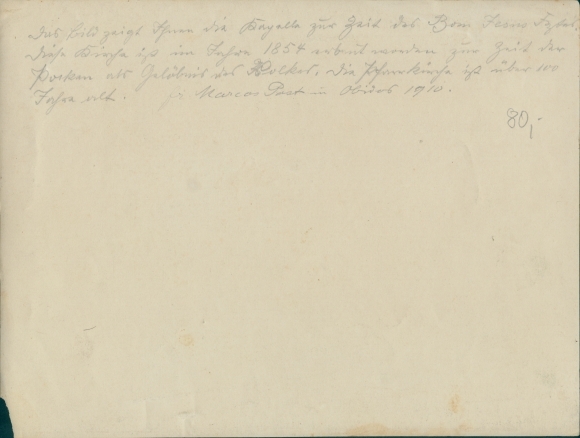 Das Bild zeigt Ihnen die Kapelle zur Zeit des Bom Jesus
diese Kirche ist im Jahre 1854 erbaut worden zur Zeit der
Pocken als Gelöbnis des Volkes. Die Pfarrkirche ist über 100
Jahre alt. Marcos in Obidos 1910.
80,-